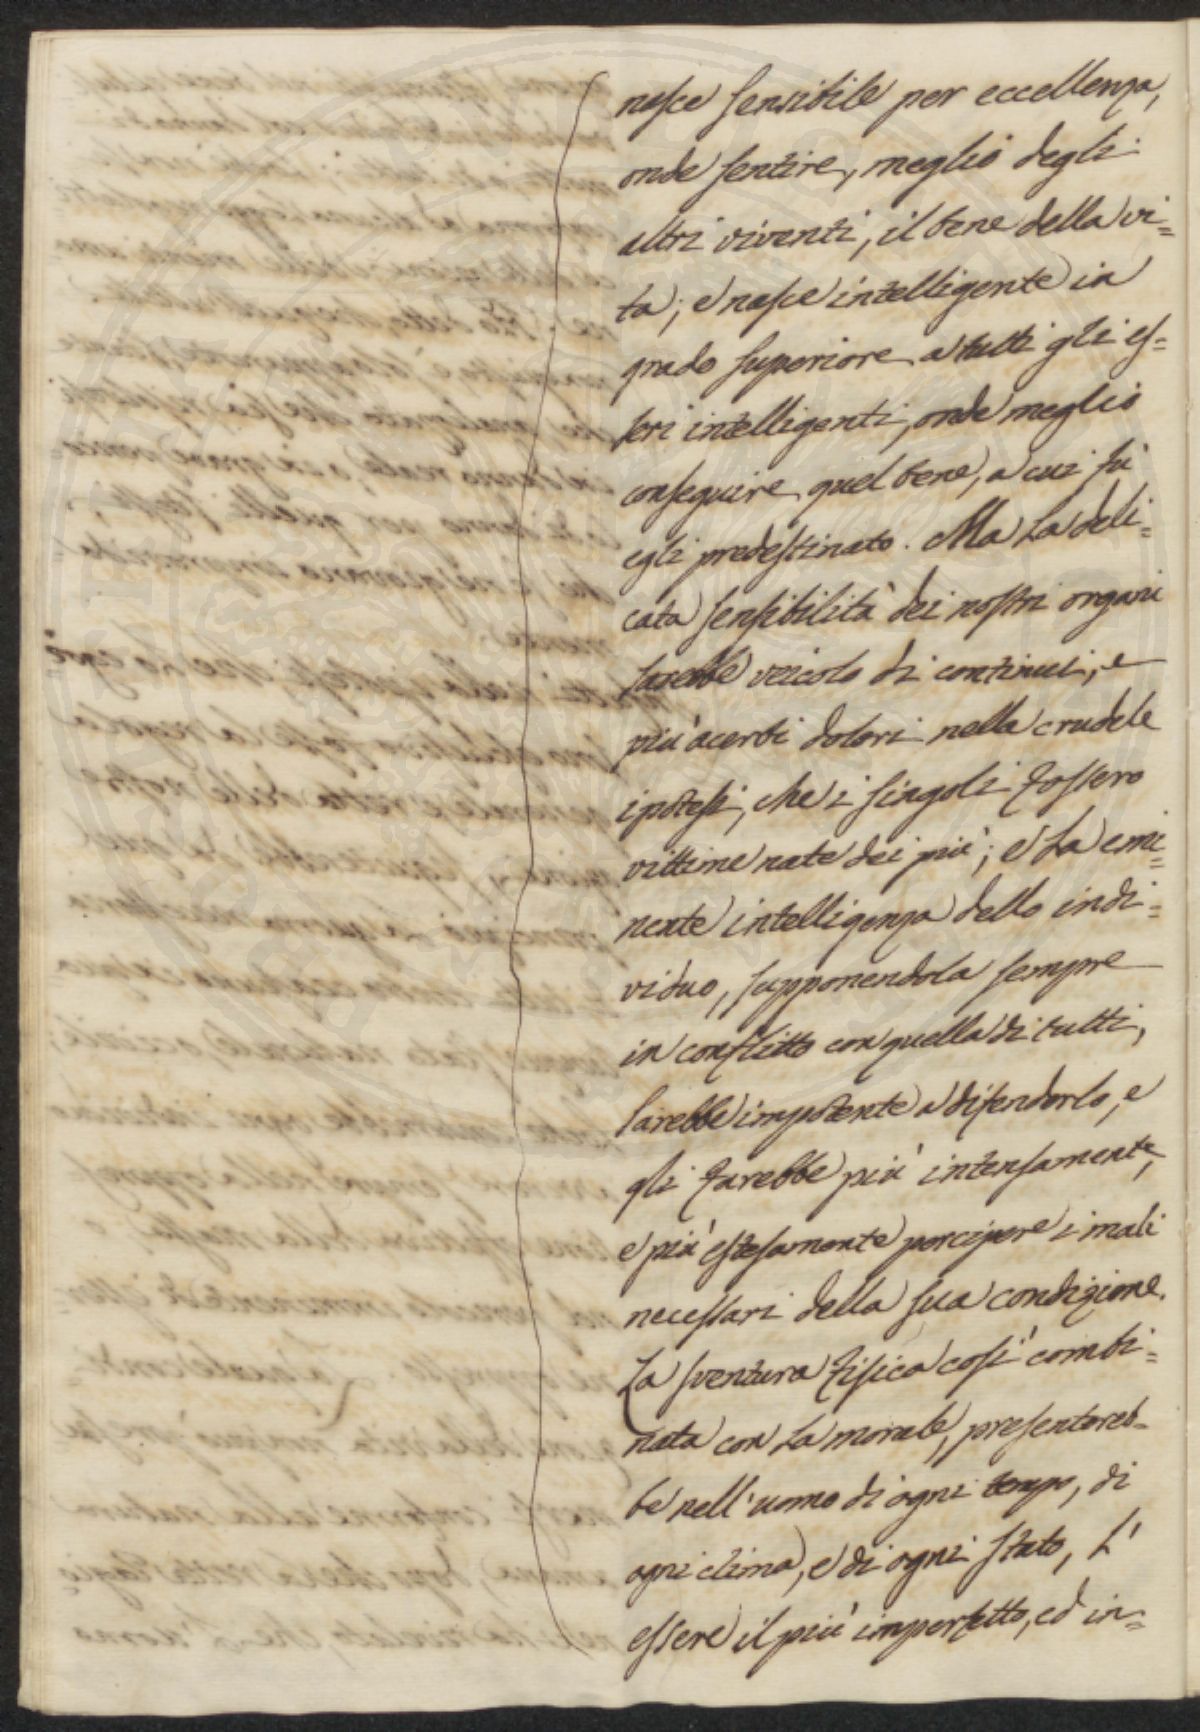 nasce sensibile per eccellenza,
onde sentire, meglio degli
altri viventi, il bene della vi=
ta; e nasce intelligente in
grado superiore a tutti gli es=
seri intelligenti, onde meglio
conseguire quel bene, a cui fu
egli predestinato. Ma la deli=
cata sensibilità dei nostri organi
sarebbe veicolo di continui, e
più acerbi dolori nella crudele
ipotesi, che i singoli fossero
vittime nate dei più; e la emi=
nente intelligenza dello indi=
viduo, supponendola sempre
in conflitto con quella di tutti,
sarebbe impotente a difenderlo, e
gli farebbe più intensamente,
e più estesamente percipere i mali
necessari della sua condizione.
La sventura fisica così combi=
nata con la morale, presentereb=
be nell'uomo di ogni tempo, di
ogni clima, e di ogni stato, l'
essere il più imperfetto, ed in=